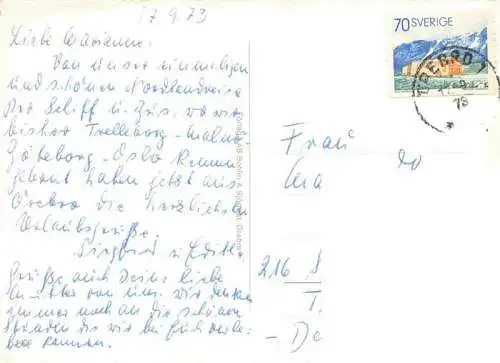 17.9.73
Liebe Marianne.
Von unser einmaligen
und schönen Nordlandreise
per Schiff u. Zug, wo wir
bisher Trelleborg - Malmö
Göteborg - Oslo kennen
gelernt haben jetzt aus
Örebro die herzlichsten
Urlaubsgrüße.
Siegfried u. Edith
Grüße auch Deine liebe
Mutter von uns. Wir denken
immer noch an die schönen
Stunden die wir bei Euch verle-
ben konnten.
70 SVERIGE
ÖREBRO 1
73
Frau
Ma
216 S
T.
- De